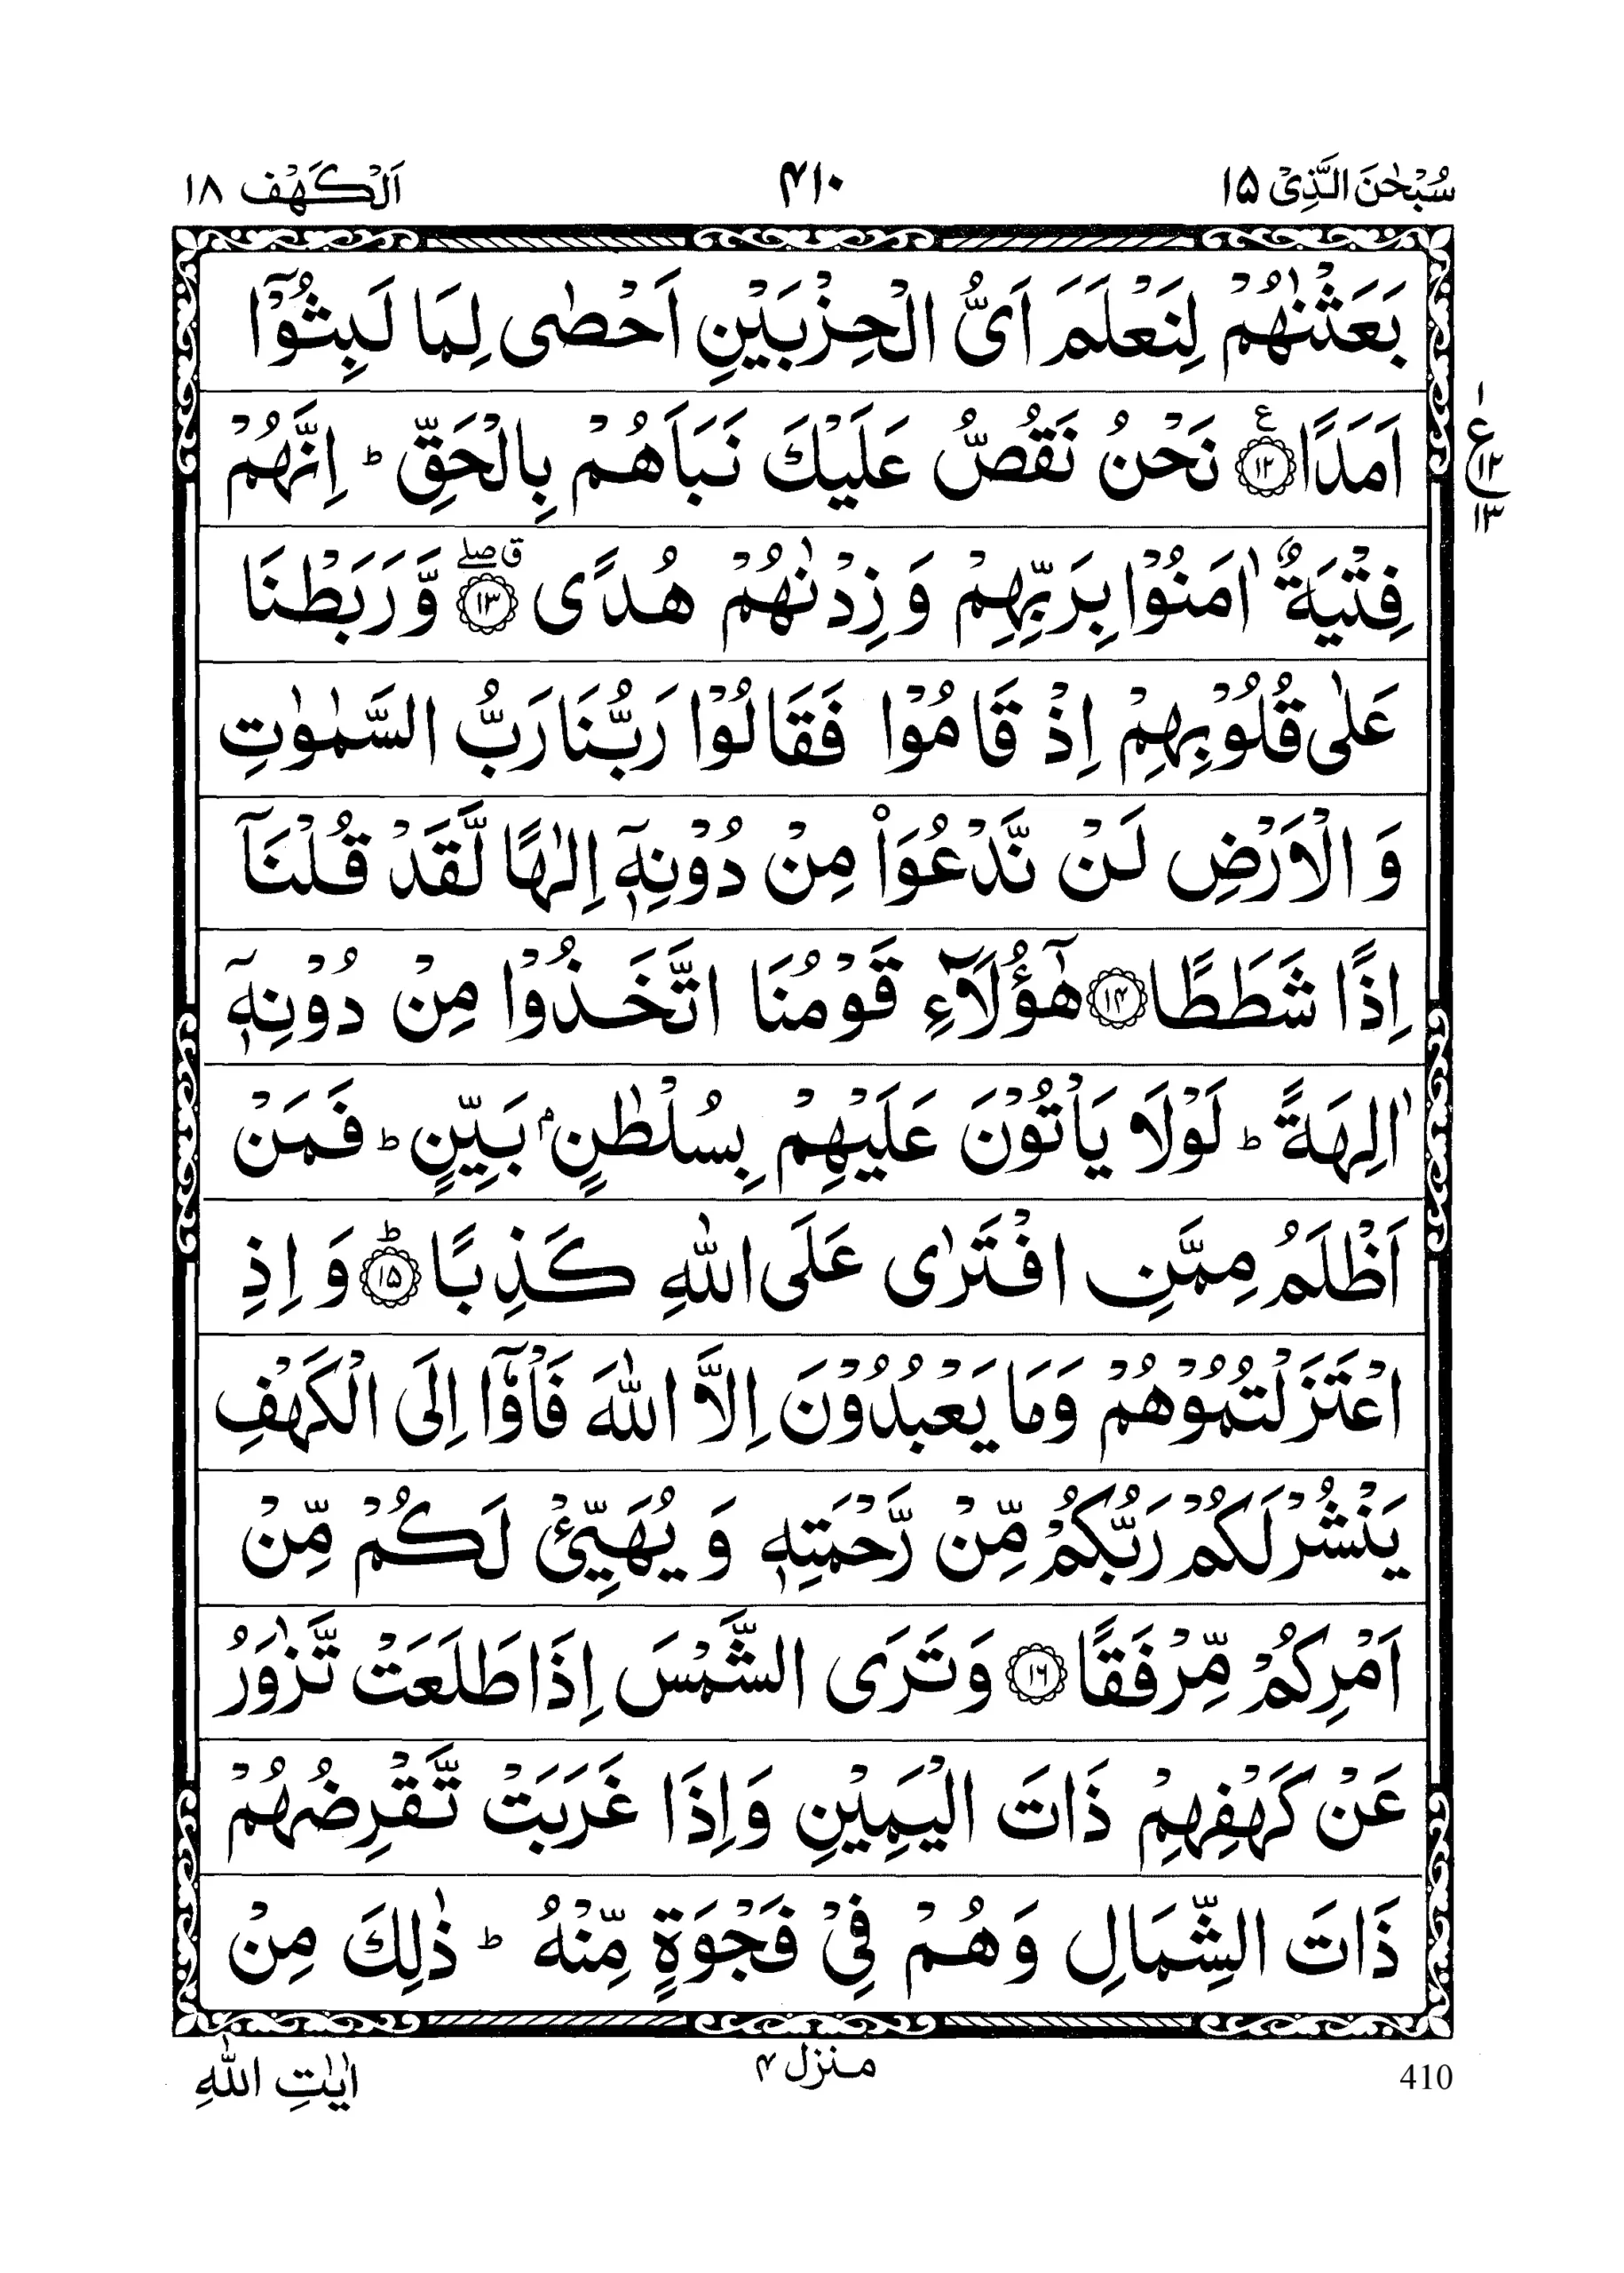 سُبْحٰنَ الَّذِیْۤ ۱۵ ۴۱۰ اَلْكَهْف ۱۸
بَعَثْنٰهُمْ لِنَعْلَمَ اَیُّ الْحِزْبَیْنِ اَحْصٰی لِمَا لَبِثُوْۤا
اَمَدًا ۱۲ ع نَحْنُ نَقُصُّ عَلَیْكَ نَبَاَهُمْ بِالْحَقِّ ؕ اِنَّهُمْ
۱ ع ۱۲ ۱۳
فِتْیَةٌ اٰمَنُوْا بِرَبِّهِمْ وَ زِدْنٰهُمْ هُدًی ۱۳ ق صلے وَّ رَبَطْنَا
عَلٰی قُلُوْبِهِمْ اِذْ قَامُوْا فَقَالُوْا رَبُّنَا رَبُّ السَّمٰوٰتِ
وَ الْاَرْضِ لَنْ نَّدْعُوَا۠ مِنْ دُوْنِهٖۤ اِلٰهًا لَّقَدْ قُلْنَاۤ
اِذًا شَطَطًا ۱۴ هٰۤؤُلَآءِ قَوْمُنَا اتَّخَذُوْا مِنْ دُوْنِهٖۤ
اٰلِهَةً ؕ لَوْلَا یَاْتُوْنَ عَلَیْهِمْ بِسُلْطٰنٍۭ بَیِّنٍ ؕ فَمَنْ
اَظْلَمُ مِمَّنِ افْتَرٰی عَلَی اللّٰهِ كَذِبًا ؕ ۱۵ وَ اِذِ
اعْتَزَلْتُمُوْهُمْ وَمَا یَعْبُدُوْنَ اِلَّا اللّٰهَ فَاْوٗۤا اِلَی الْكَهْفِ
یَنْشُرْ لَكُمْ رَبُّكُمْ مِّنْ رَّحْمَتِهٖ وَ یُهَیِّئْ لَكُمْ مِّنْ
اَمْرِكُمْ مِّرْفَقًا ۱۶ وَ تَرَی الشَّمْسَ اِذَا طَلَعَتْ تَّزٰوَرُ
عَنْ كَهْفِهِمْ ذَاتَ الْیَمِیْنِ وَاِذَا غَرَبَتْ تَّقْرِضُهُمْ
ذَاتَ الشِّمَالِ وَهُمْ فِیْ فَجْوَةٍ مِّنْهُ ؕ ذٰلِكَ مِنْ
410 منزل ۴ اٰیٰتِ اللّٰهِ